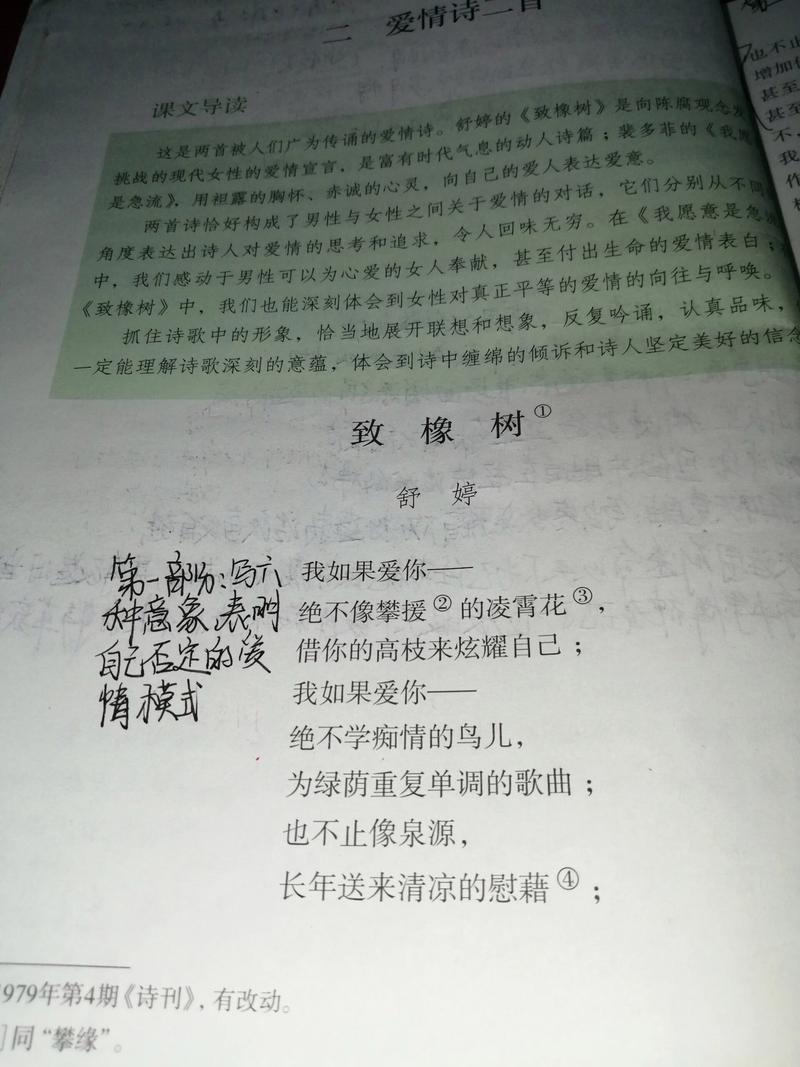 二 爱情诗二首
课文导读
这是两首被人们广为传诵的爱情诗。舒婷的《致橡树》是向陈腐观念发
挑战的现代女性的爱情宣言，是富有时代气息的动人诗篇；裴多菲的《我愿
是急流》，用袒露的胸怀、赤诚的心灵，向自己的爱人表达爱意。
两首诗恰好构成了男性与女性之间关于爱情的对话，它们分别从不同
角度表达出诗人对爱情的思考和追求，令人回味无穷。在《我愿意是急流
中，我们感动于男性可以为心爱的女人奉献，甚至付出生命的爱情表白；
《致橡树》中，我们也能深刻体会到女性对真正平等的爱情的向往与呼唤。
抓住诗歌中的形象，恰当地展开联想和想象，反复吟诵，认真品味，
一定能理解诗歌深刻的意蕴，体会到诗中缠绵的倾诉和诗人坚定美好的信念
致橡树①
舒婷
第一部分：写六
种意象，表明
自己否定的爱
情模式
我如果爱你——
绝不像攀援②的凌霄花③，
借你的高枝来炫耀自己；
我如果爱你——
绝不学痴情的鸟儿，
为绿荫重复单调的歌曲；
也不止像泉源，
长年送来清凉的慰藉④；
979年第4期《诗刊》，有改动。
]同“攀缘”。
也不止
增加
甚至
甚至
不，
我
作